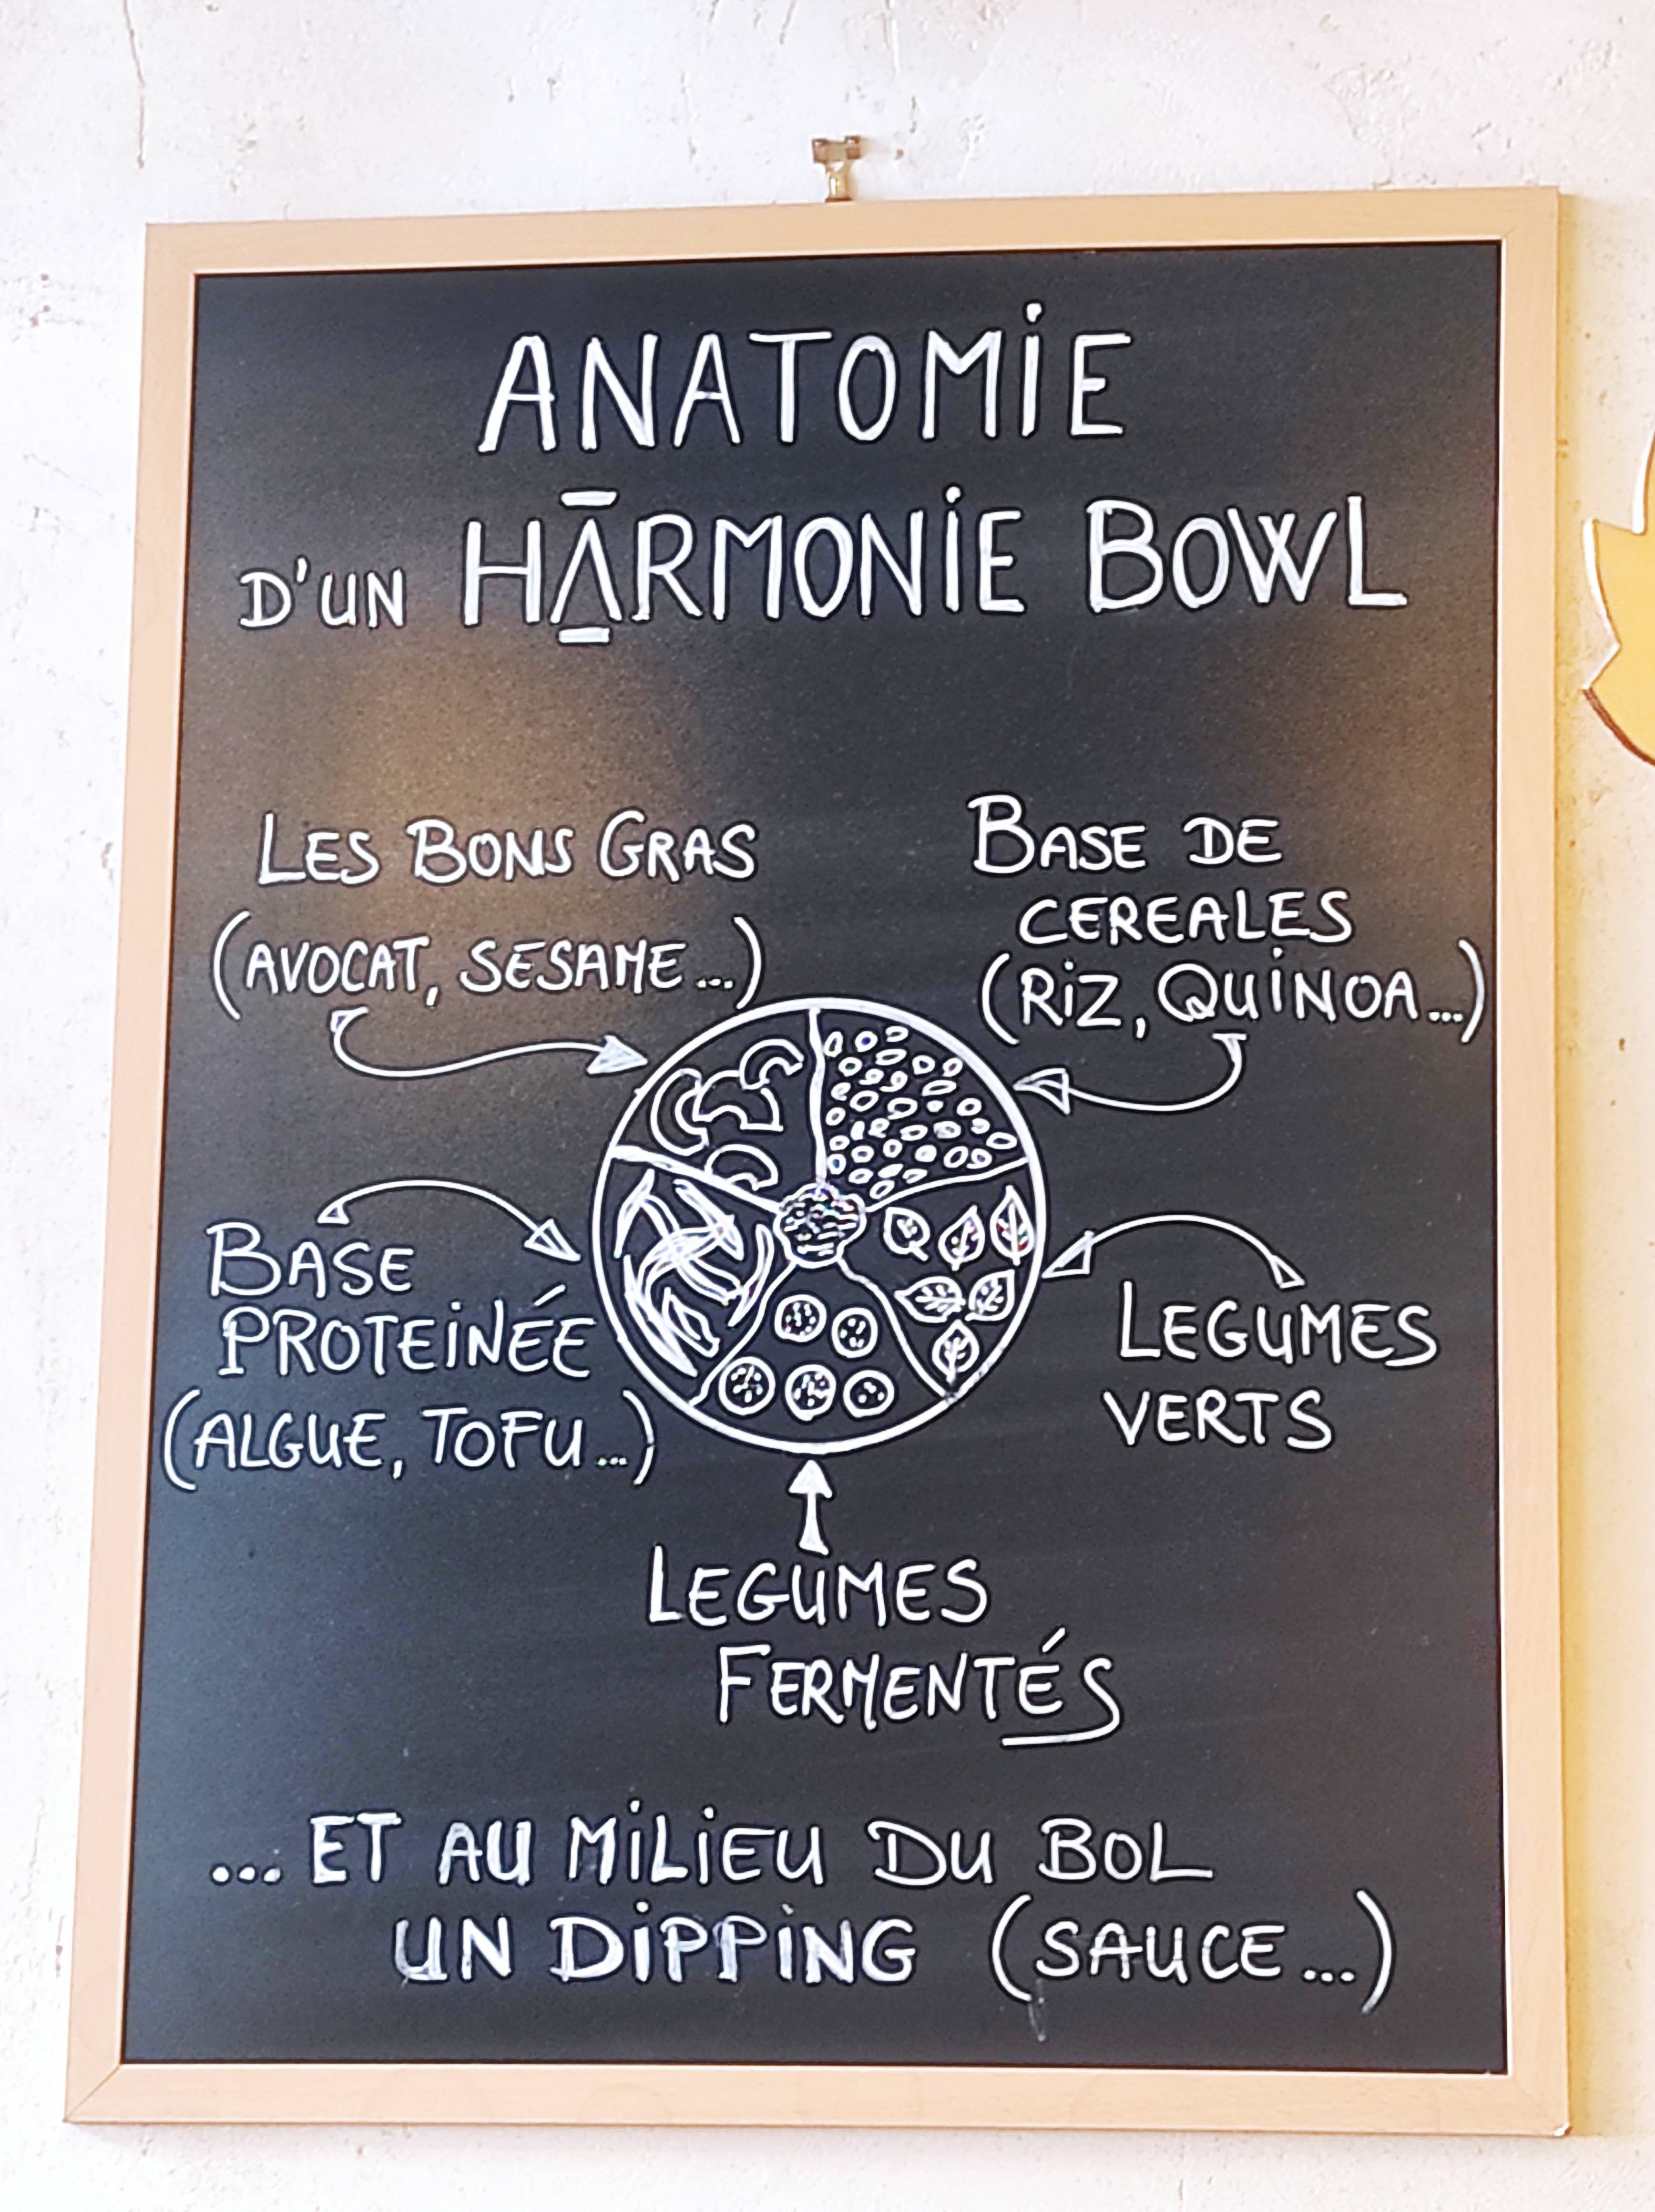 ANATOMIE
D'UN HĀRMONIE BOWL
LES BONS GRAS
(AVOCAT, SESAME...)
BASE DE
CEREALES
(RIZ, QUINOA...)
BASE
PROTEINÉE
(ALGUE, TOFU...)
LEGUMES
VERTS
LEGUMES
FERMENTÉS
... ET AU MILIEU DU BOL
UN DIPPING (SAUCE...)